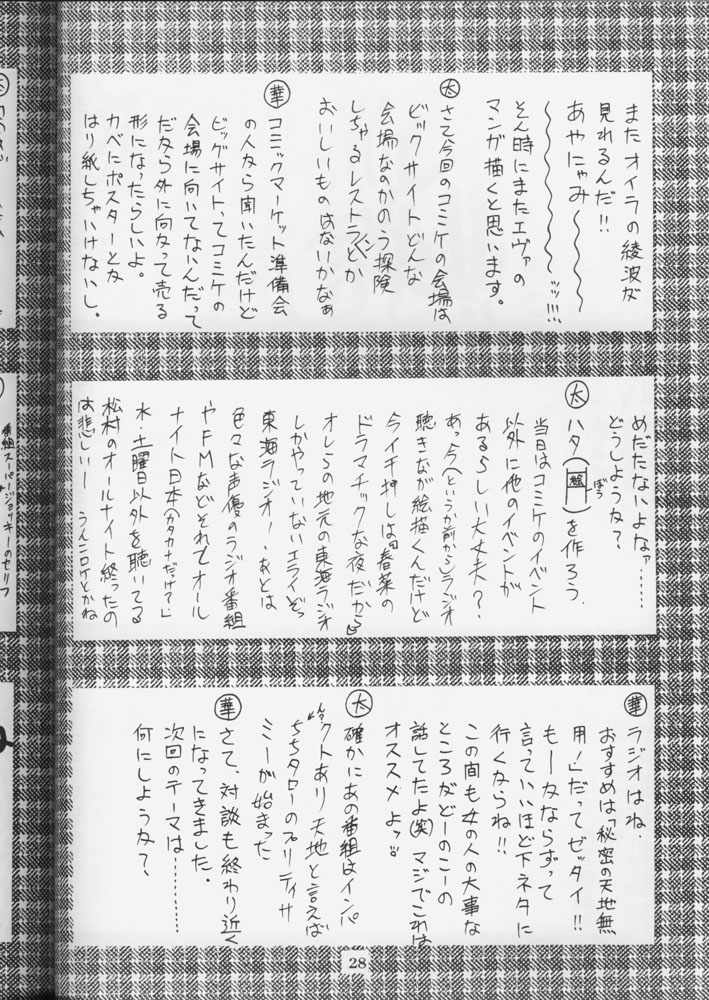 またオイラの綾波が
見れるんだ!!
あやにゃみ〜〜〜
〜〜〜〜〜〜ッッ!!!
そん時にまたエヴァの
マンガ描くと思います。
太 さて今回のコミケの会場は
ビックサイトどんな
会場なのかのう探険
しちゃるレストランとか
おいしいものはないかなぁ
華 コミックマーケット準備会
の人から聞いたんだけど
ビッグサイトってコミケの
会場に向いてないんだって
だから外に向かって売る
形になったらしいよ。
カベにポスターとか
はり紙しちゃいけないし。
めだたないよなァ……
どうしようか?
太 ハタ(絵 ぼう)を作ろう.
当日はコミケのイベント
以外に他のイベントが
あるらしい大丈夫?
あっ今(というか前から)ラジオ
聴きながら絵描くんだけど
今イチ押しは『春菜の
ドラマチックな夜だから』
オレらの地元の東海ラジオ
しかやっていないエライぞっ
東海ラジオ!.あとは
色々な声優のラジオ番組
やFMなどそれとオール
ナイト日本(カタカナだっけ?)
水・土曜日以外を聴いてる
松村のオールナイト終ったの
は悲しいー うんこロケとかね
華 ラジオはね.
おすすめは「秘密の天地無
用!」だってゼッタイ!!
もーかならずって
言っていいほど下ネタに
行くからね!!
この間も女の人の大事な
ところがどーのこーの
話してたよ(笑)マジでこれは
オススメよッ
太 確かにあの番組はインパ
クトあり天地と言えば
ちちタローのプリティサ
ミーが始まった
華 さて、対談も終わり近く
になってきました.
次回のテーマは………
何にしようか?
番組スーパージョッキーのセリフ
28